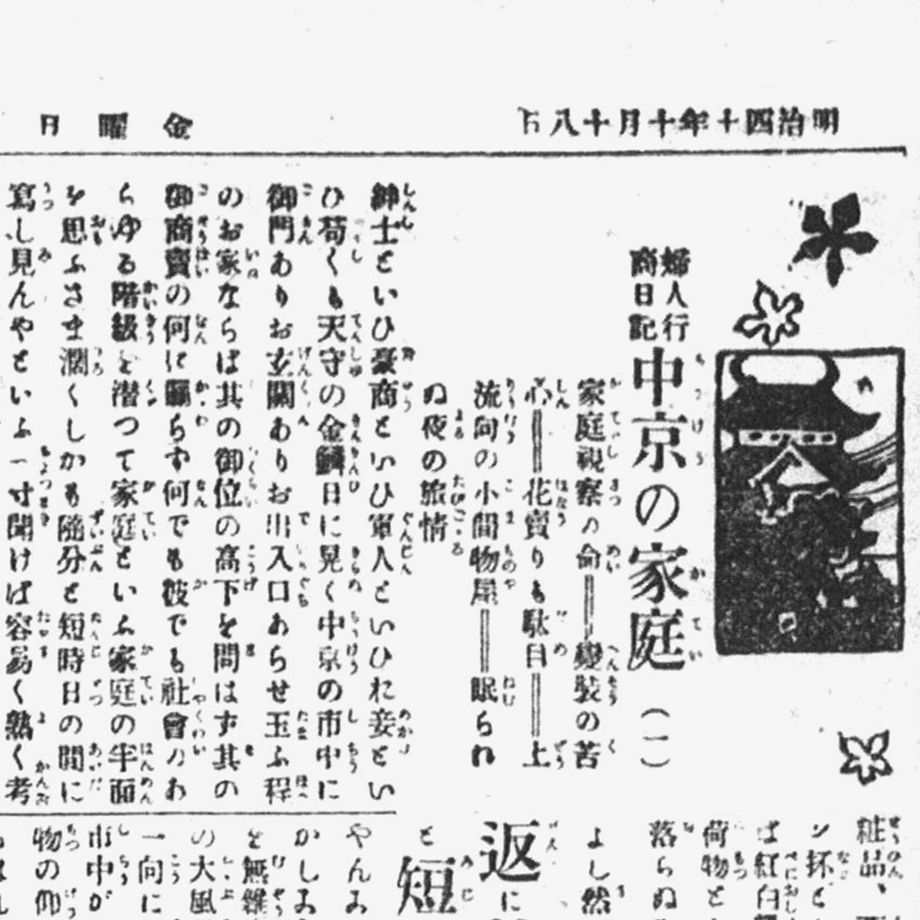 明治四十年十月十八日
金曜日
婦人行商日記
中京の家庭(一)
家庭視察の命＝變裝の苦
心＝花賣りも駄目＝上
流向の小間物屋＝眠られ
ぬ夜の旅情
紳士といひ豪商といひ軍人といひれ妾とい
ひ苟くも天守の金鱗日に晃く中京の市中に
御門ありお玄關ありお出入口あらせ玉ふ程
のお家ならば其の御位の高下を問はず其の
御商賣の何に關らず何でも彼でも社會のあ
らゆる階級を潜つて家庭といふ家庭の半面
を思ふさま濶くしかも隨分と短時日の間に
寫し見んやといふ一寸聞けば容易く熟く考
粧品、
荷物と
落らぬ
よし然
返に
と短
やんみ
かしみ
を無雜
の大風
一向に
市中が
物の仰